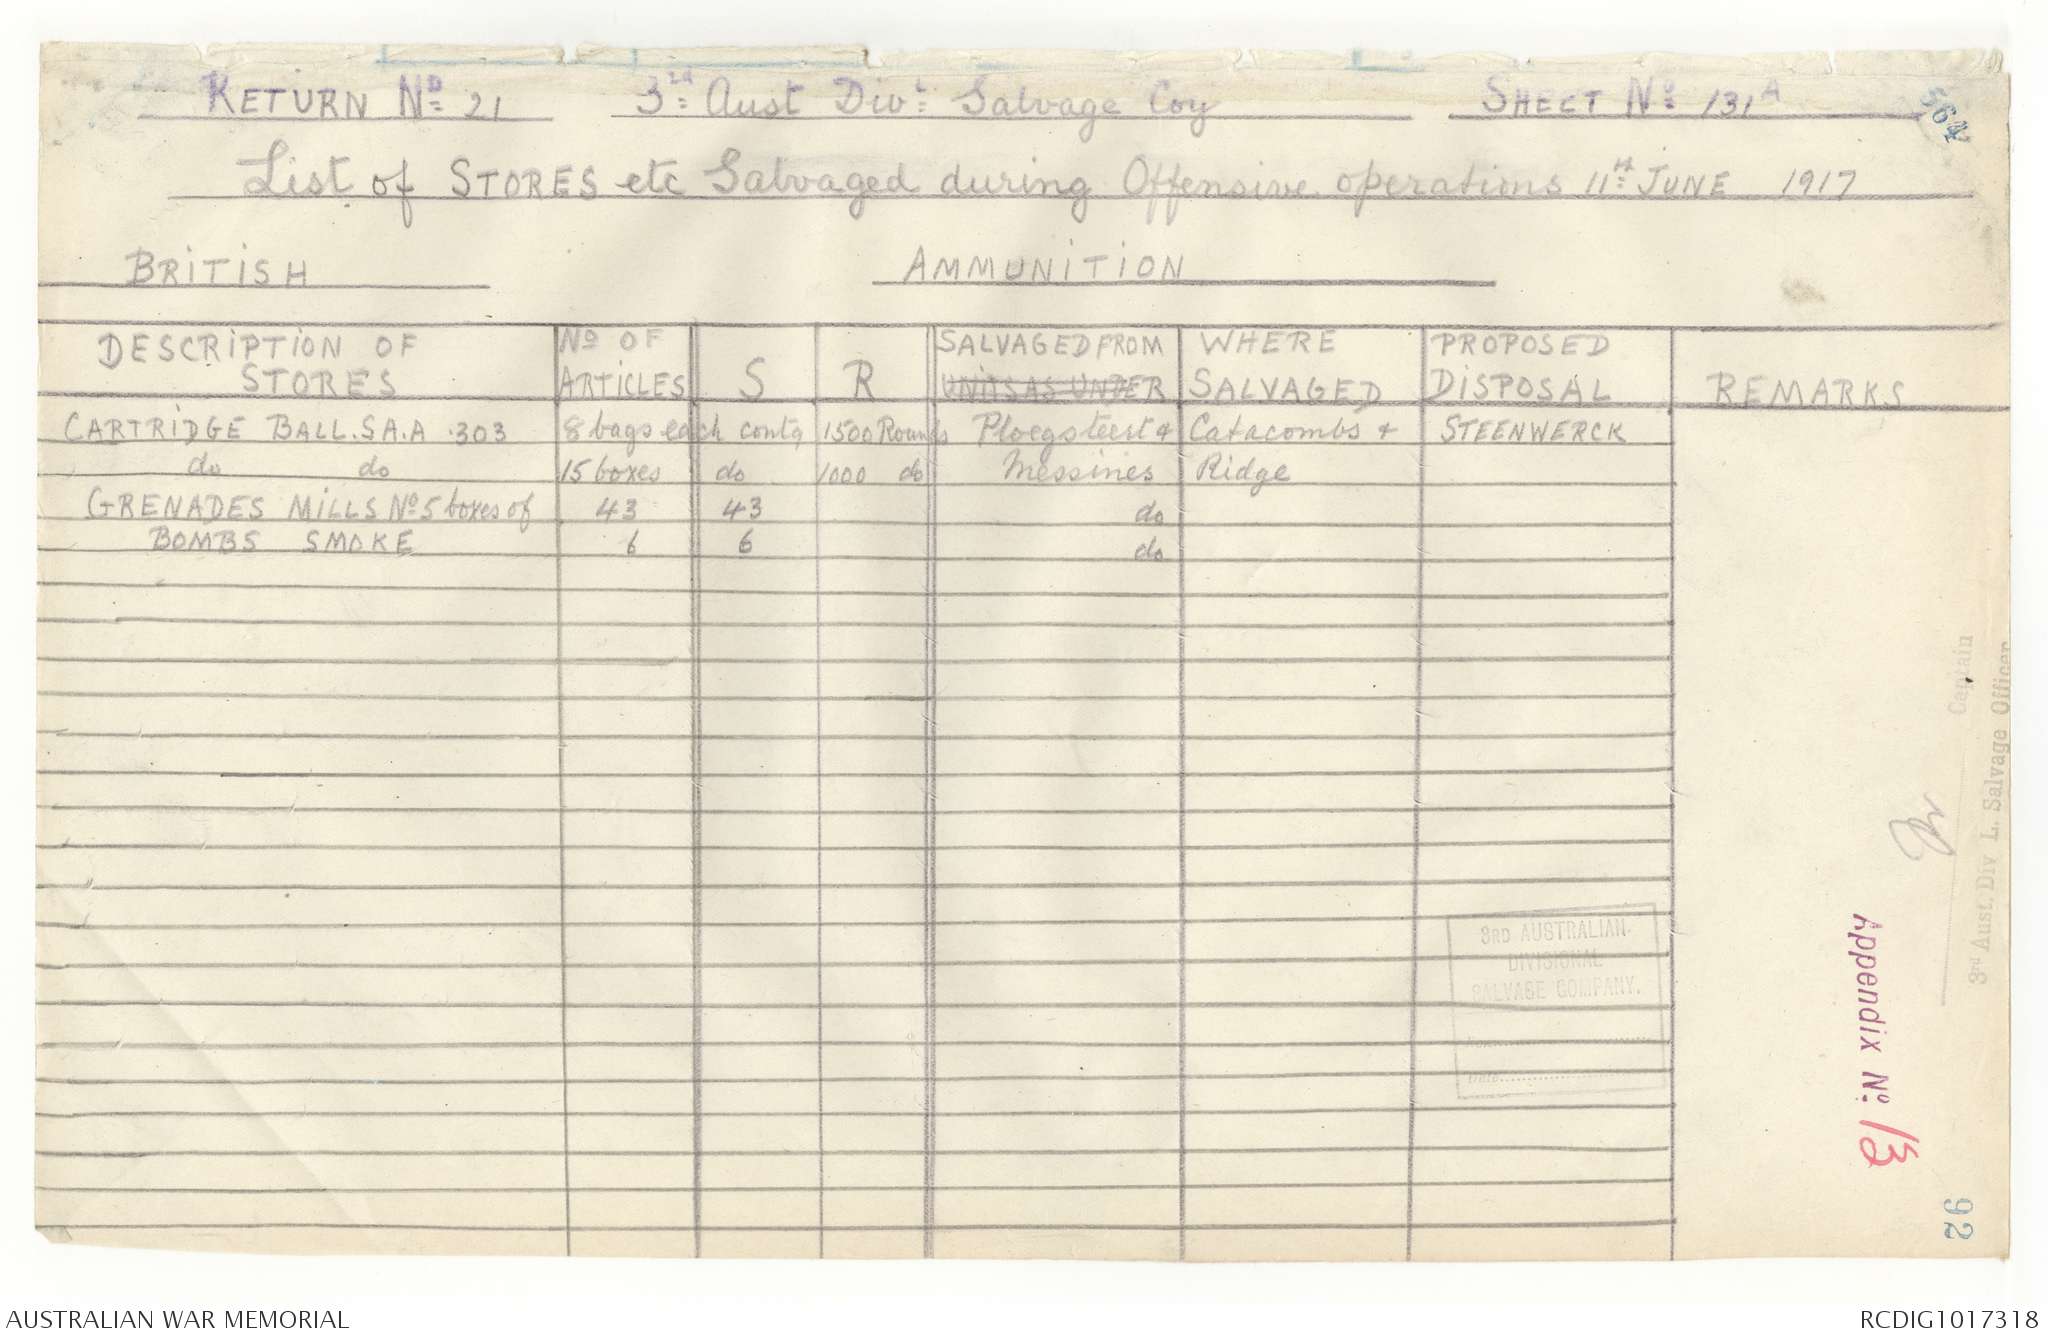 RETURN No 21 3rd Aust Divl Salvage Coy SHEET No 131A
List of STORES etc Salvaged during Offensive operations 11th JUNE 1917
BRITISH AMMUNITION
DESCRIPTION OF STORES No OF ARTICLES S R SALVAGED FROM UNITS AS UNDER WHERE SALVAGED PROPOSED DISPOSAL REMARKS
CARTRIDGE BALL. S.A.A .303 8 bags each contg 1500 Rounds Ploegsteert & Catacombs & STEENWERCK
do do 15 boxes do 1000 do Messines Ridge
GRENADES MILLS No 5 boxes of 43 43 do
BOMBS SMOKE 6 6 do
Captain
3rd Aust. Div L. Salvage Officer
3RD AUSTRALIAN.
DIVISIONAL
SALVAGE COMPANY.
Date
Appendix No. 13
92
AUSTRALIAN WAR MEMORIAL RCDIG1017318